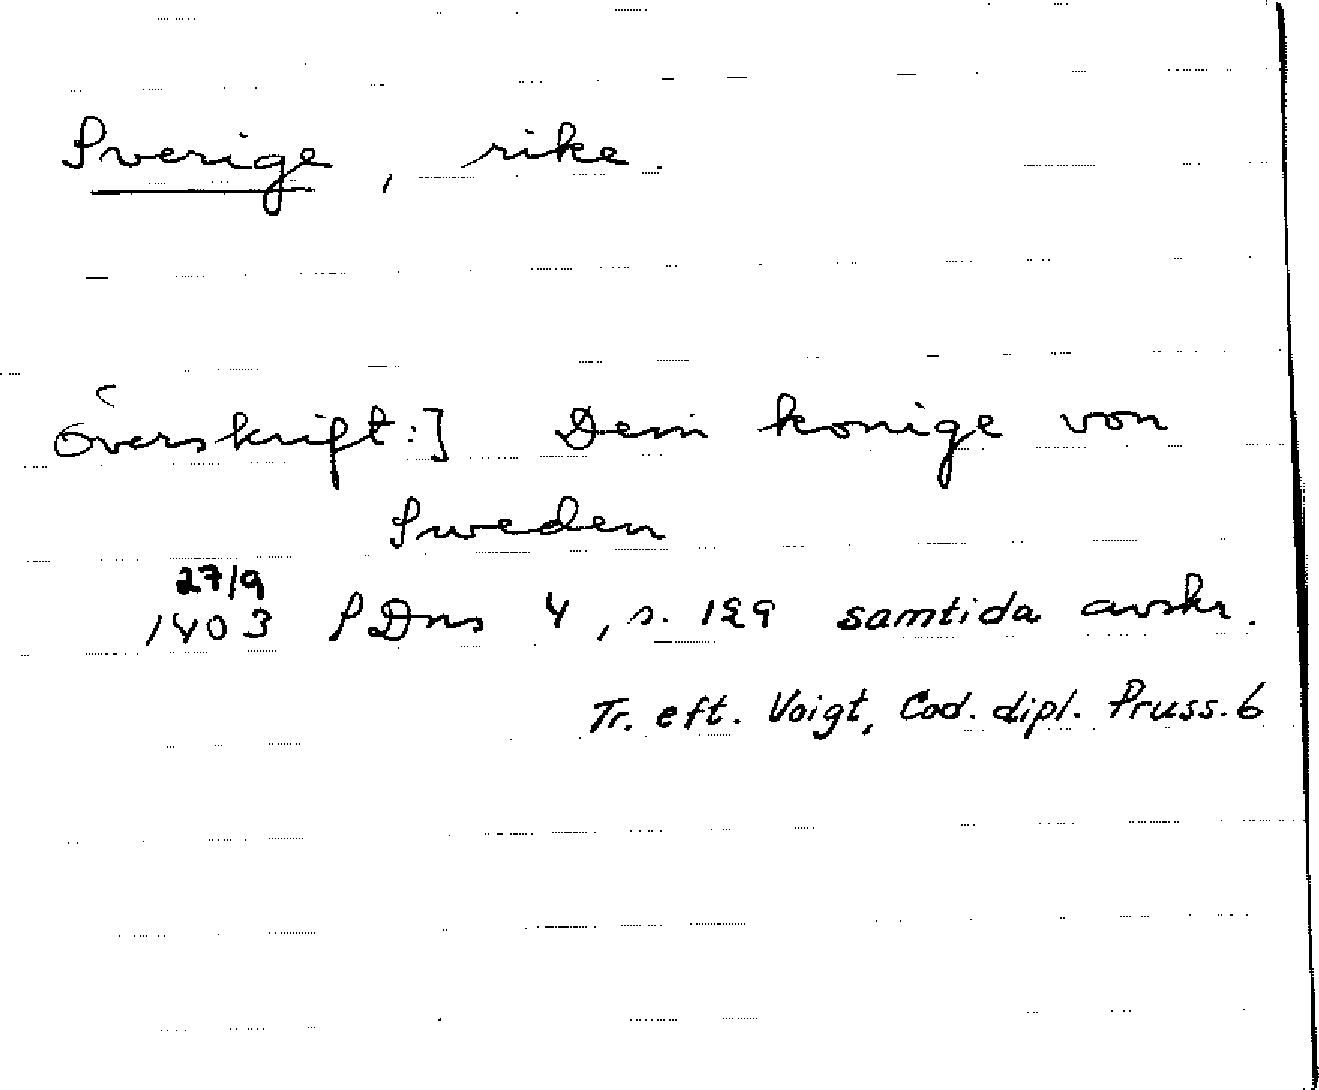 Sverige, rike.
överskrift:] Dem konige von
Sweden
27/9
1403 SDns 4, s. 129 samtida avskr.
Tr. eft. Voigt, Cod. dipl. Pruss. 6